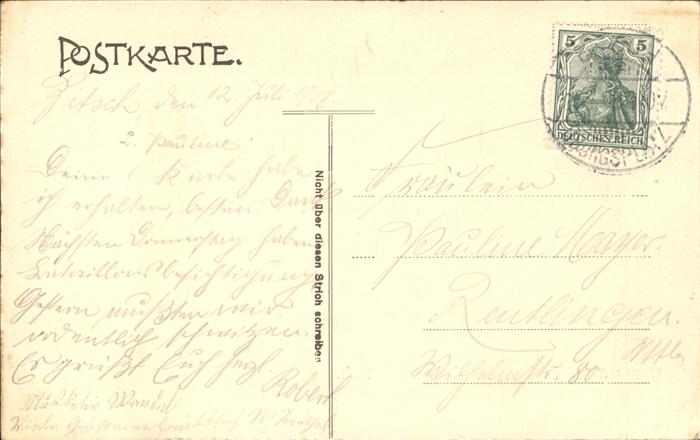 POSTKARTE.
5 5
DEUTSCHES REICH
UNGSPLATZ
den 12. Juli
L. Pauline!
Deine l. Karte habe
ich erhalten, besten Dank
Nächsten Donnerstag haben
Bataillonsbesichtigung
Gestern mußten wir
ordentlich schwitzen.
Es grüßt Euch herzl.
Robert
Nicht über diesen Strich schreiben
Fräulein
Pauline
Reutlingen.
Wilhelmstr. 80.